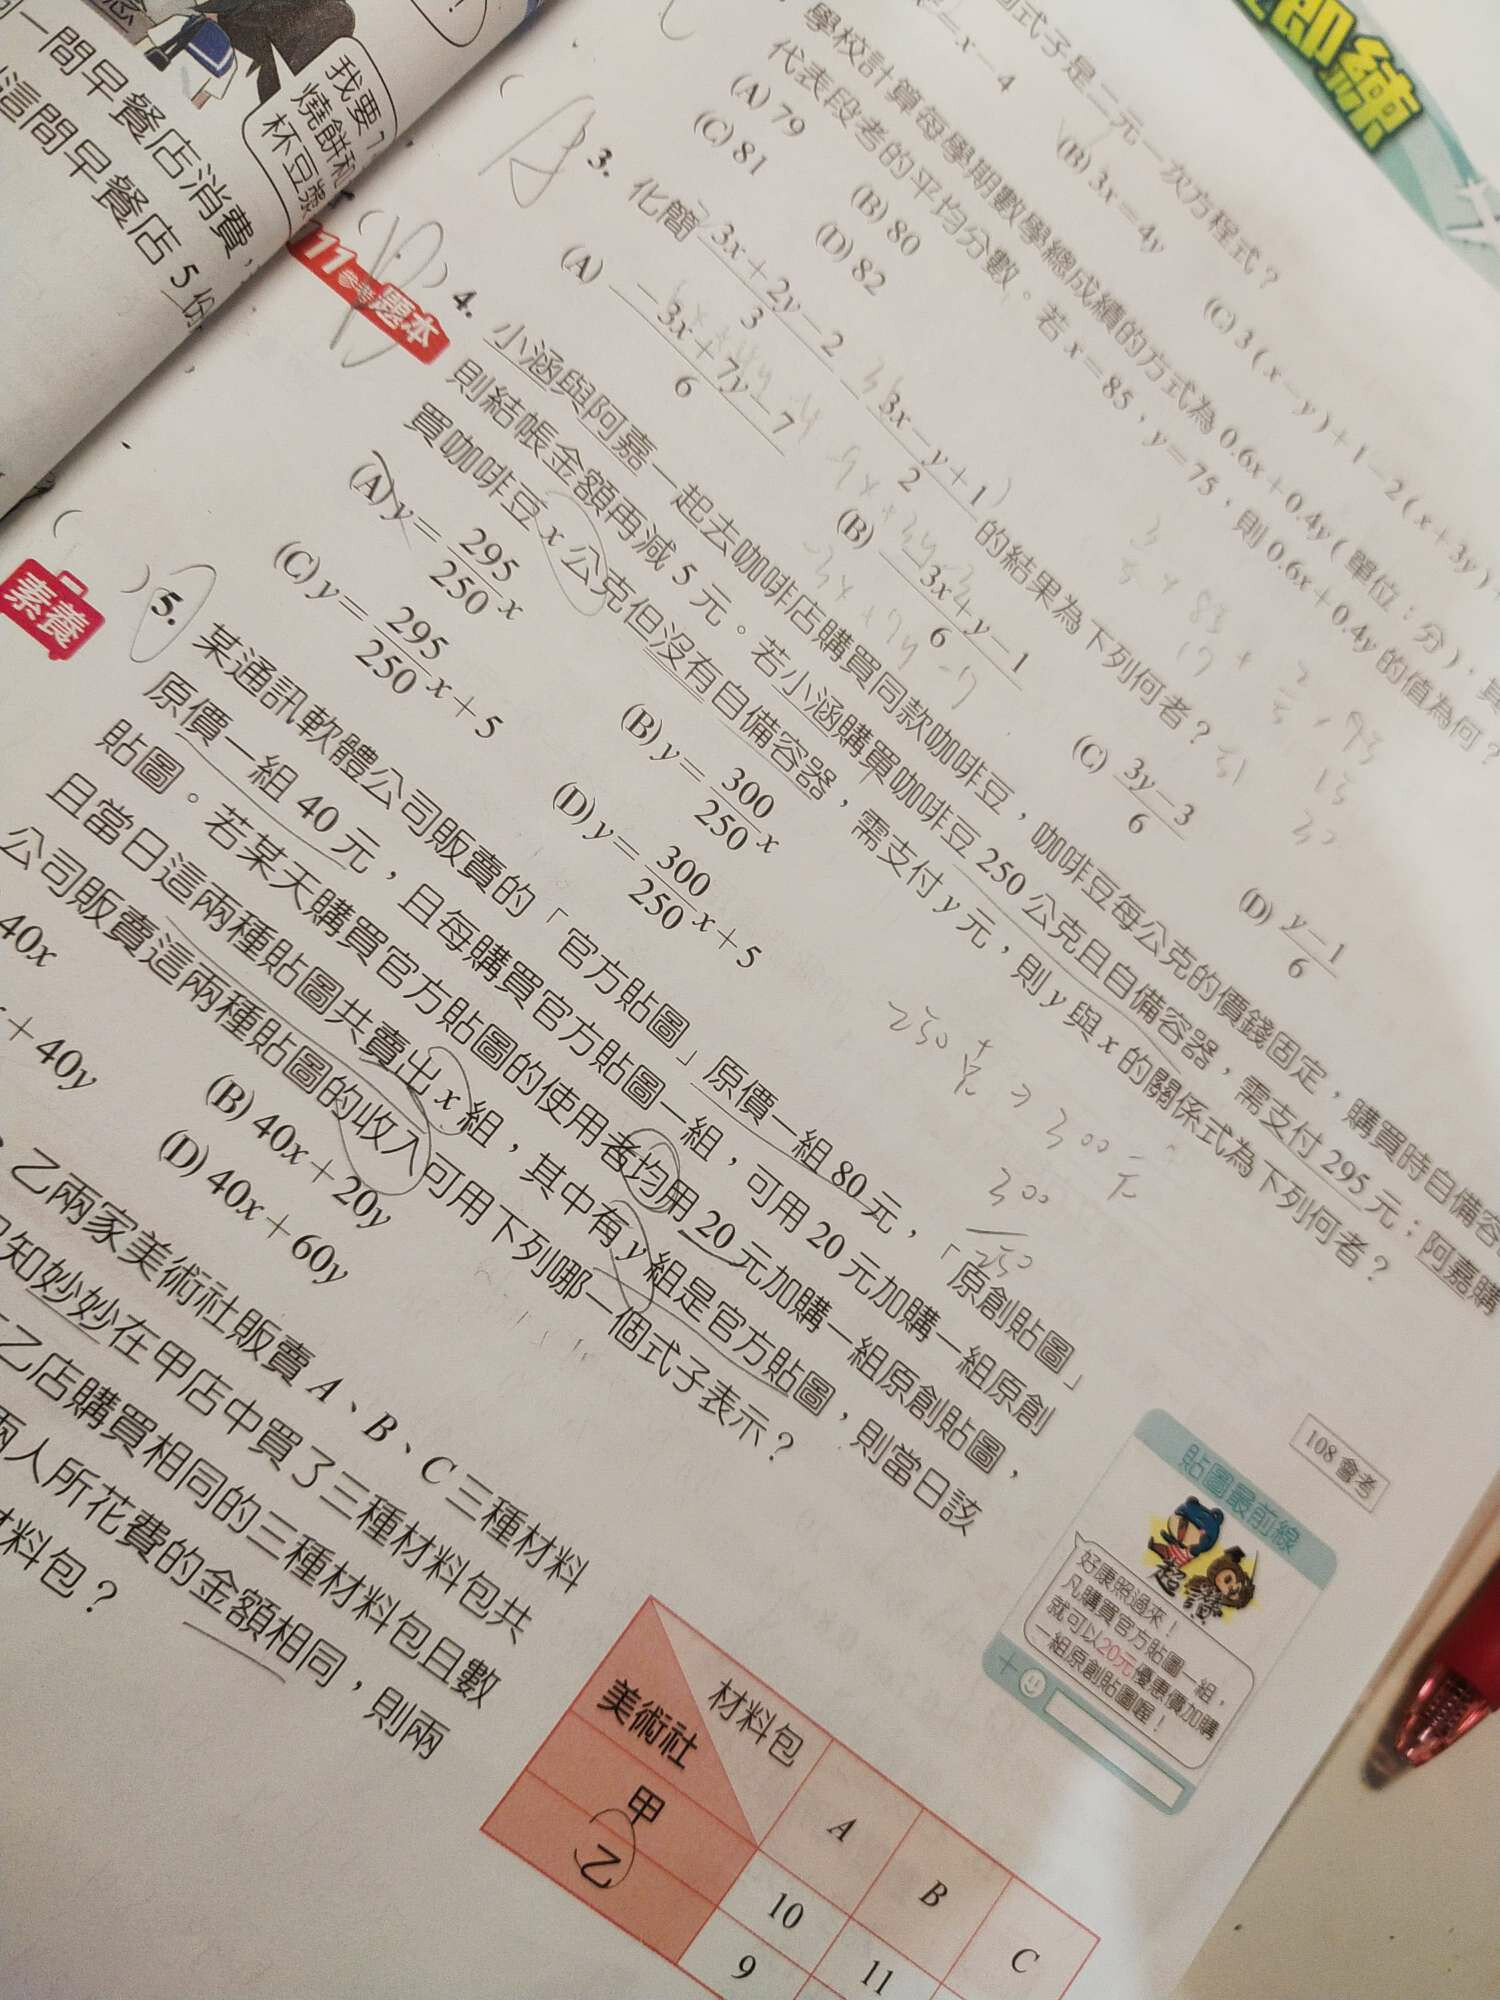 即練
一間早餐店消費，
這間早餐店 5 份
我要
燒餅和
杯豆漿
式子是二元一次方程式？
(B) 3x＝4y
(C) 3(x－y)＋1－2(x＋3y)
學校計算每學期數學總成績的方式為 0.6x＋0.4y（單位：分），其
代表段考的平均分數。若 x＝85，y＝75，則 0.6x＋0.4y 的值為何？
(A) 79
(B) 80
(C) 81
(D) 82
A
3. 化簡 3x＋2y－2/3 － 3x－y＋1/2 的結果為下列何者？
(A) －3x＋7y－7/6
(B) －3x＋y－1/6
(C) 3y－3/6
(D) y－1/6
11參考題本
4. 小涵與阿嘉一起去咖啡店購買同款咖啡豆，咖啡豆每公克的價錢固定，購買時自備容
則結帳金額再減 5 元。若小涵購買咖啡豆 250 公克且自備容器，需支付 295 元；阿嘉購
買咖啡豆 x 公克但沒有自備容器，需支付 y 元，則 y 與 x 的關係式為下列何者？
(A) y＝295/250 x
(B) y＝300/250 x
(C) y＝295/250 x＋5
(D) y＝300/250 x＋5
300
250
素養
5. 某通訊軟體公司販賣的「官方貼圖」原價一組 80 元，「原創貼圖」
原價一組 40 元，且每購買官方貼圖一組，可用 20 元加購一組原創
貼圖。若某天購買官方貼圖的使用者均用 20 元加購一組原創貼圖，
且當日這兩種貼圖共賣出 x 組，其中有 y 組是官方貼圖，則當日該
公司販賣這兩種貼圖的收入可用下列哪一個式子表示？
108 會考
40x
(B) 40x＋20y
＋40y
(D) 40x＋60y
貼圖最前線
超讚
好康照過來！
凡購買官方貼圖一組，
就可以20元優惠價加購
一組原創貼圖喔！
乙兩家美術社販賣 A、B、C 三種材料
知妙妙在甲店中買了三種材料包共
乙店購買相同的三種材料包且數
兩人所花費的金額相同，則兩
材料包？
材料包
美術社
A
B
C
甲
10
乙
9
11